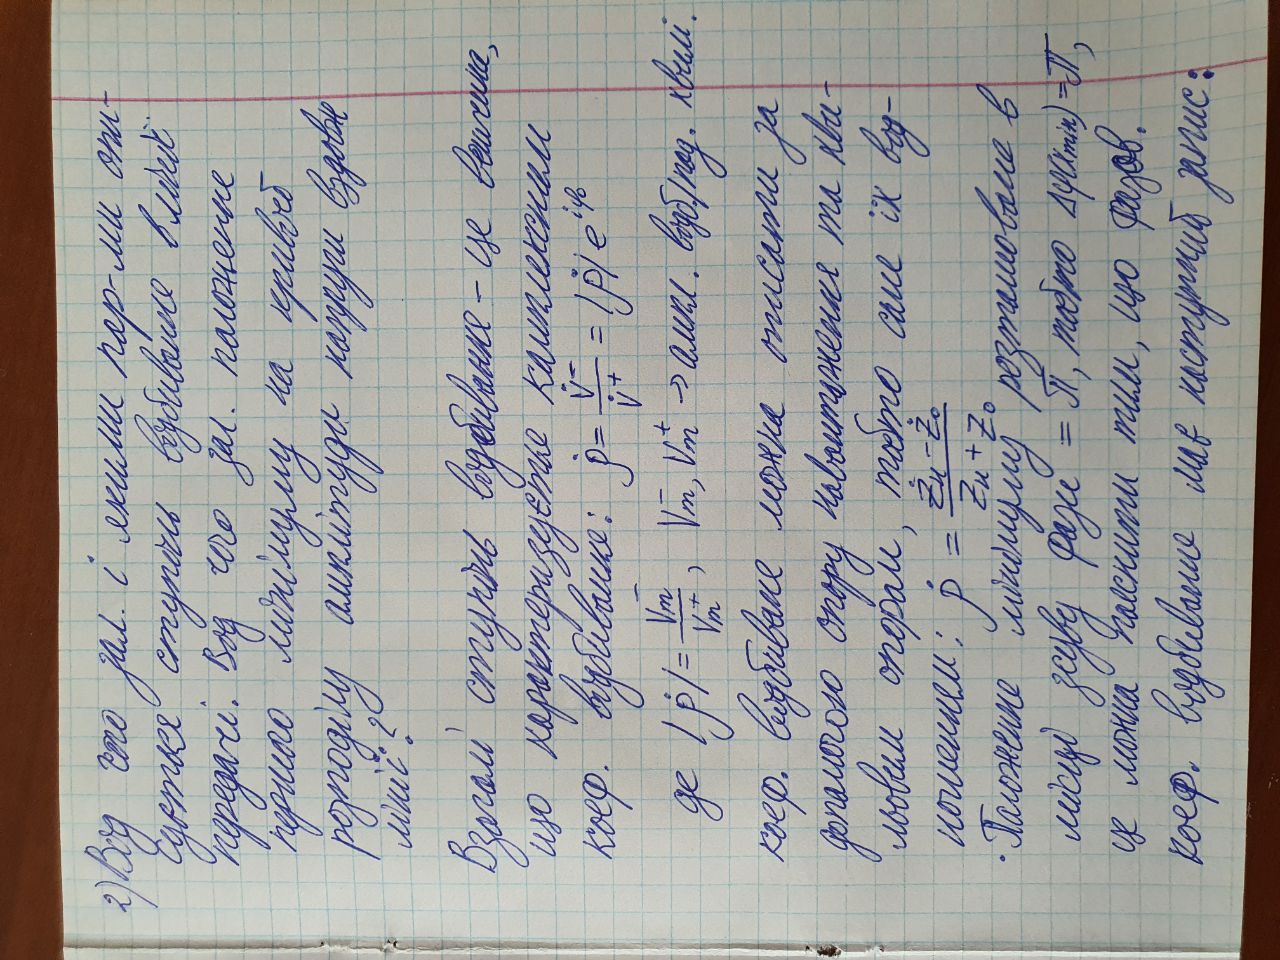 2) Від чого зал. і якими пар-ми опи-
сується ступінь відбивання в лінії
передачі. Від чого зал. положення
першого мінімуму на кривій
розподілу амплітуди напруги вздовж
лінії?
Взагалі ступінь відбивання - це величина,
що характеризується комплексним
коеф. відбивання: ṗ = V̇⁻/V̇⁺ = |ṗ| e^{iφ}
де |ṗ| = Vm⁻/Vm⁺, Vm⁻, Vm⁺ → ампл. відб/пад. хвилі.
коеф. відбивання можна описати за
допомогою опору навантаження та хви-
льовим опором, тобто саме їх від-
ношенням: ṗ = (Żн - Ż₀)/(Żн + Ż₀)
· Положення мінімуму розташоване в
місці зсуву фази = π, тобто Δφ(min) = π,
це можна пояснити тим, що фазов.
коеф. відбивання має наступний запис: